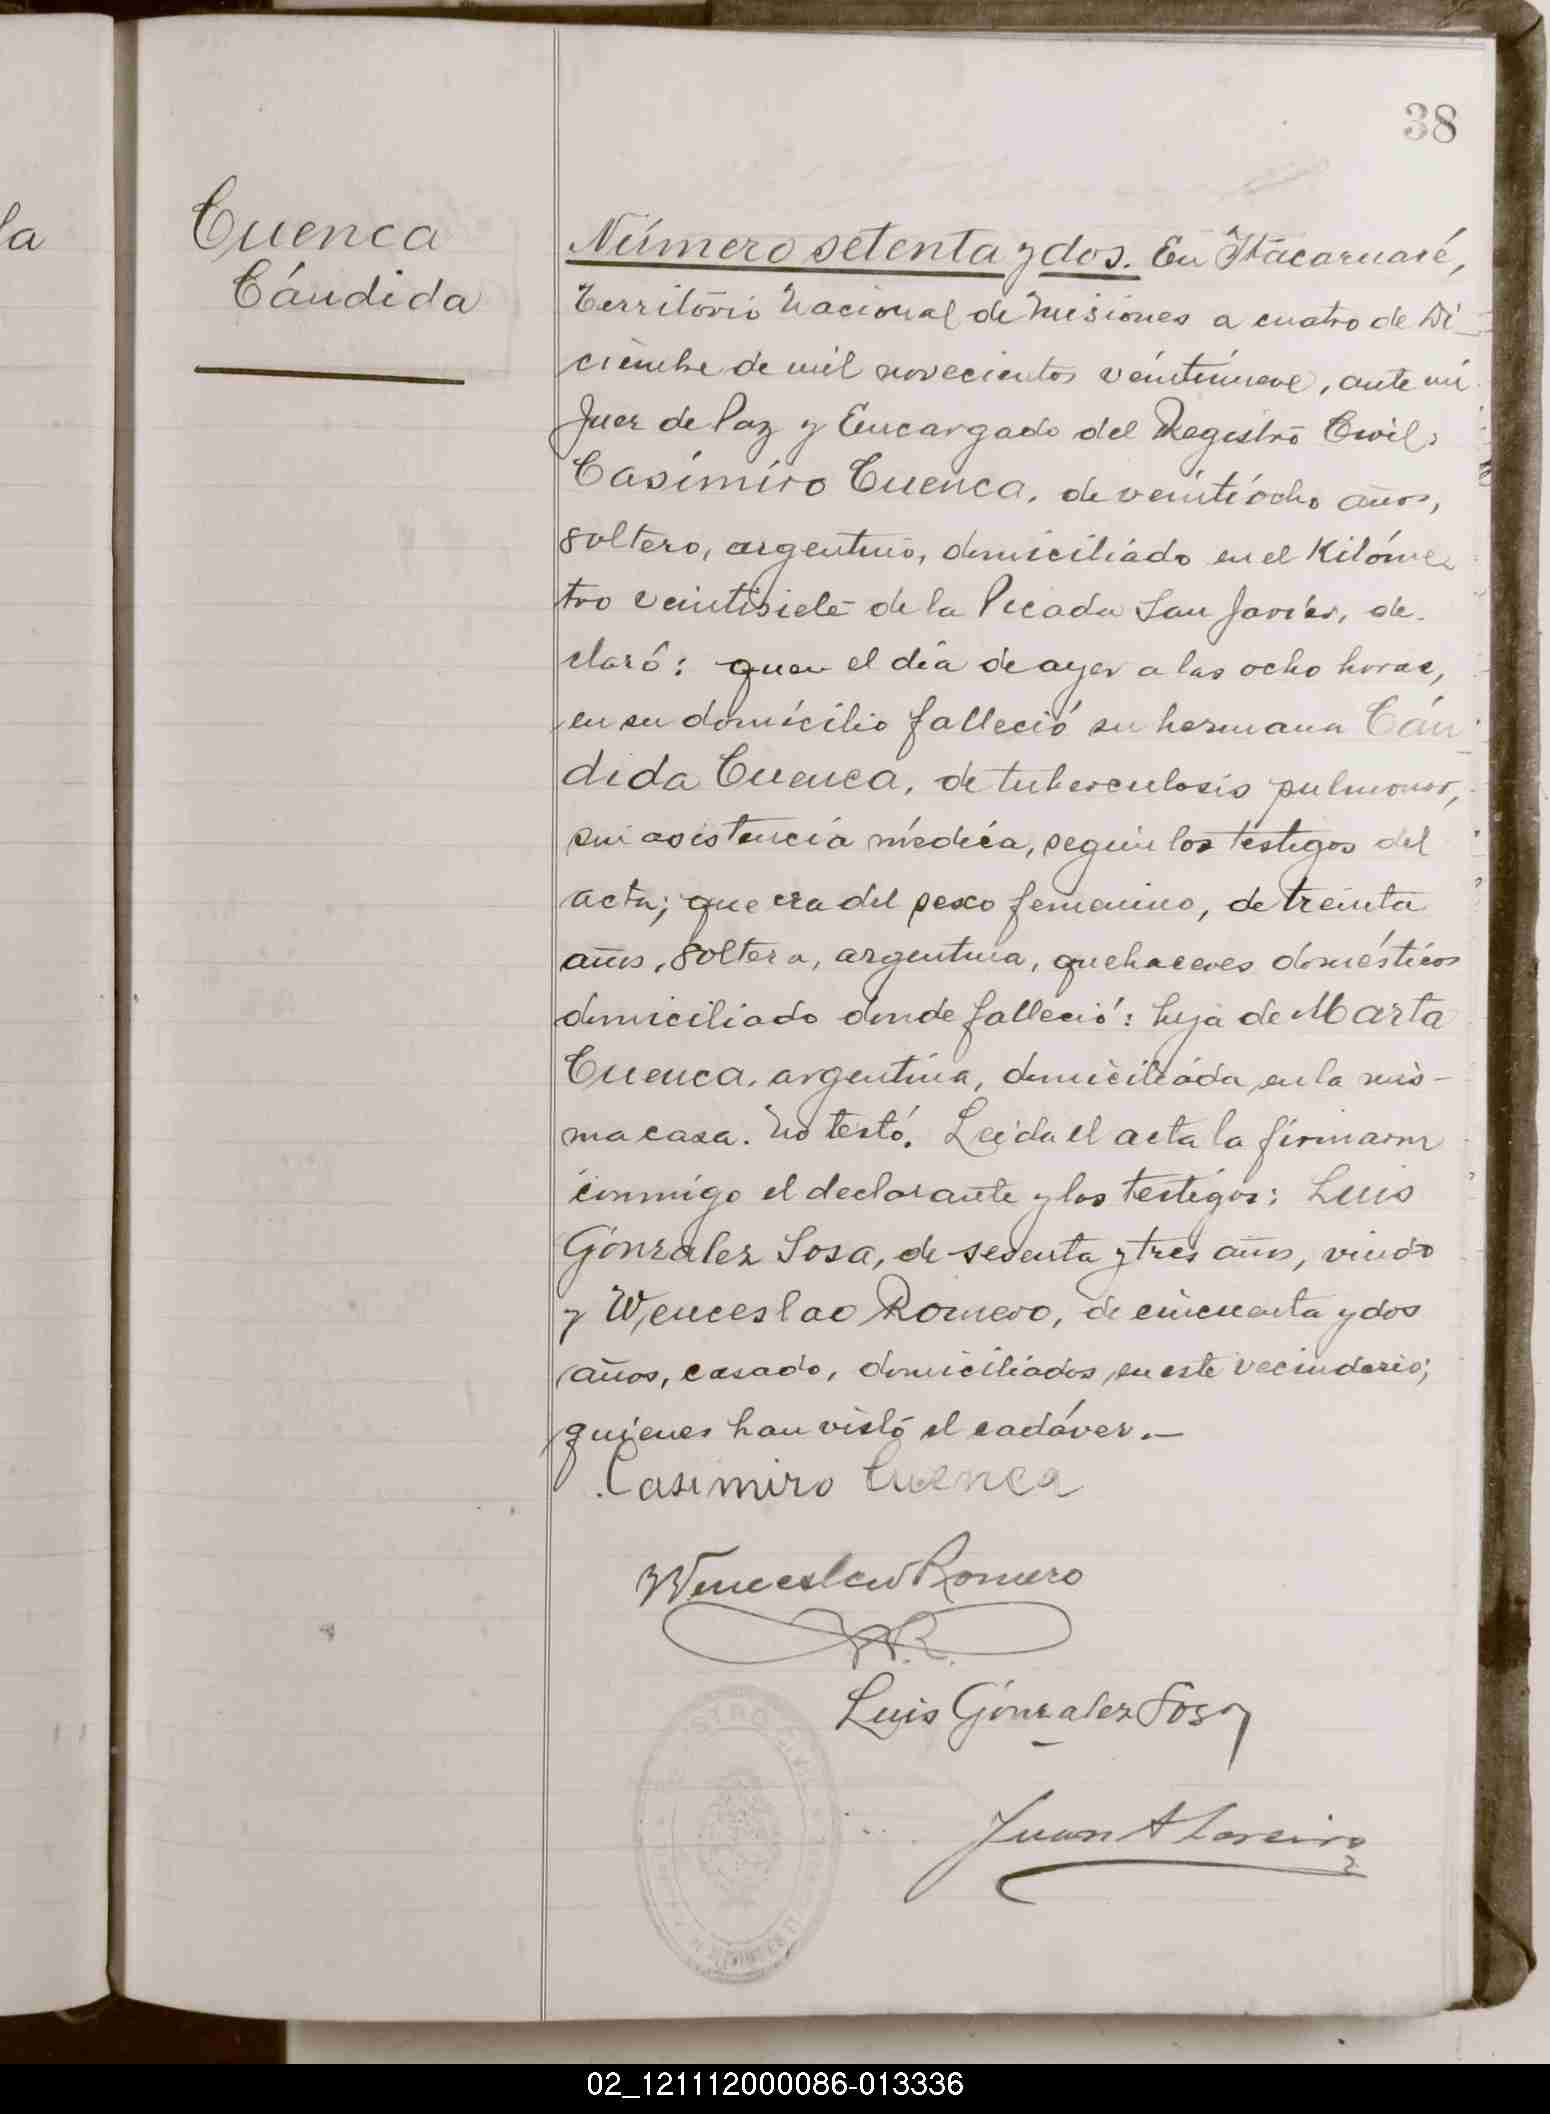 38
la
Cuenca
Cándida
Número setenta y dos. En Itacaruaré,
Territorio Nacional de Misiones a cuatro de Di-
ciembre de mil novecientos veintinueve, ante mi
Juez de Paz y Encargado del Registro Civil,
Casimiro Cuenca, de veintiocho años,
soltero, argentino, domiciliado en el Kilóme
tro veintisiete de la Picada San Javier, de-
claró: que el día de ayer a las ocho horas,
en su domicilio falleció su hermana Cán-
dida Cuenca, de tuberculosis pulmonar,
sin asistencia médica, según los testigos del
acta; que era del sexo femenino, de treinta
años, soltera, argentina, quehaceres domésticos
domiciliado donde falleció: hija de Marta
Cuenca, argentina, domiciliada en la mis-
ma casa. No testó. Leida el acta la firmaron
conmigo el declarante y los testigos: Luis
Gónzalez Sosa, de sesenta y tres años, viudo
y Wenceslao Romero, de cincuenta y dos
años, casado, domiciliados en este vecindario;
quienes han visto el cadáver.—
Casimiro Cuenca
Wenceslao Romero
W.R.
Luis Gónzalez Sosa
Juan A
02_121112000086-013336